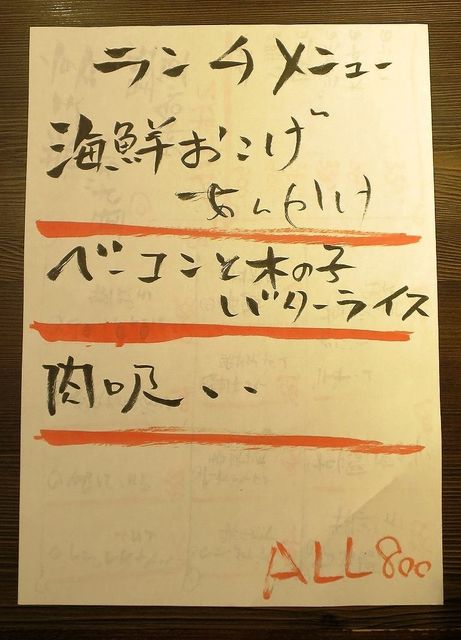 ランチメニュー
海鮮おこげ
あんかけ
ベーコンと木の子
バターライス
肉吸い
ALL 800